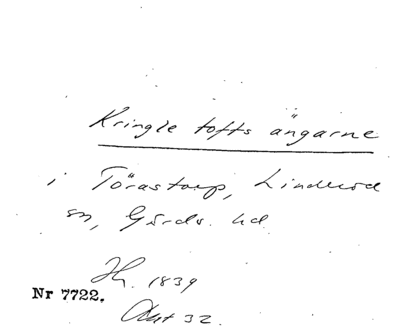 Kringle tofts ängarne
i Törastorp, Linderöd
sn, Gärds hd
Nr 7722.
Jh. 1839
Akt 32.